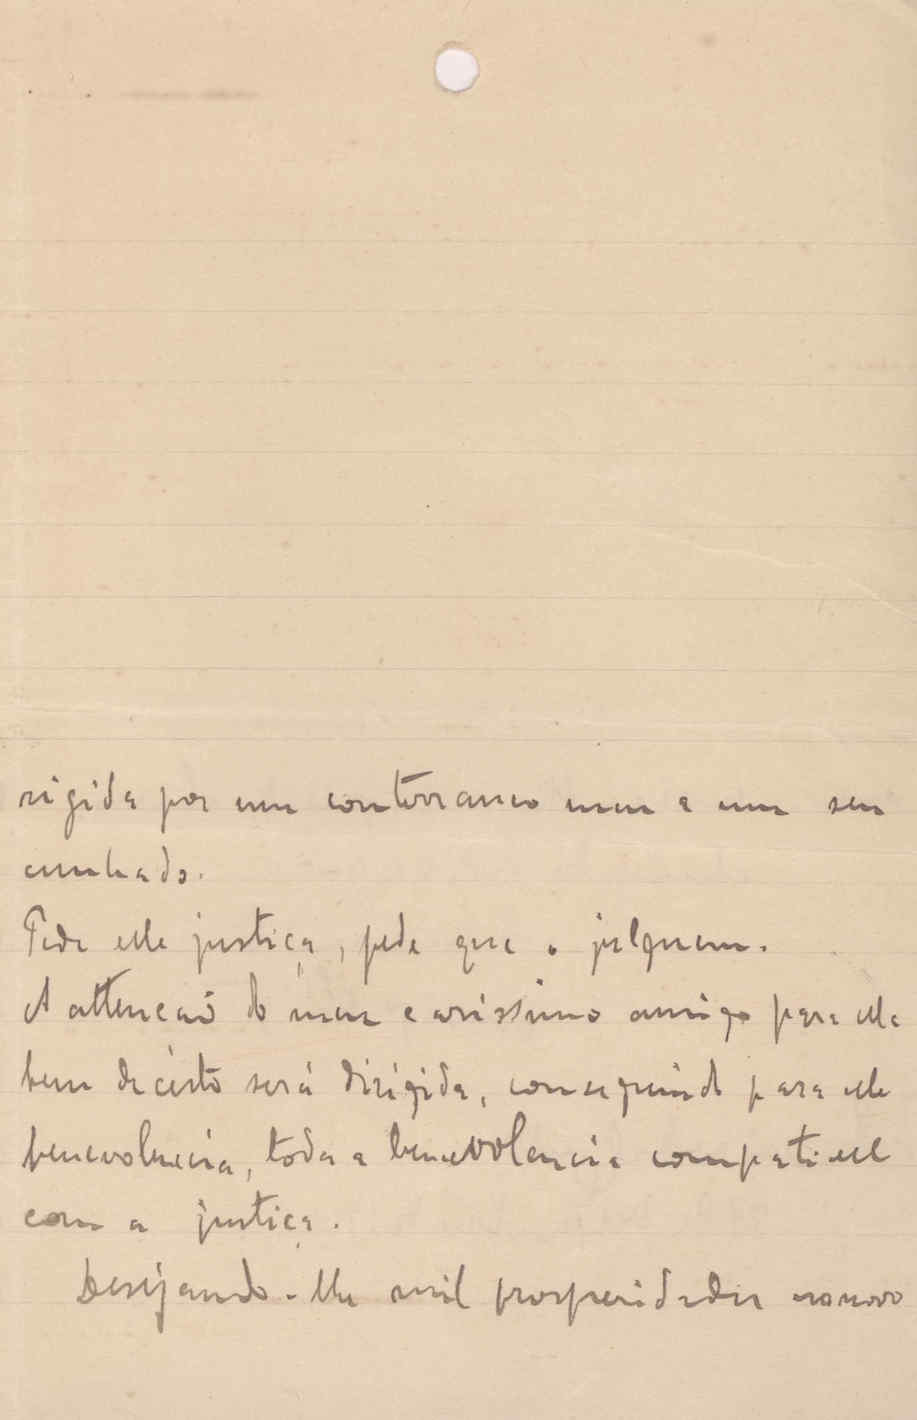 rigida por um conterraneo meu a um seu
cunhado.
Pede elle justiça, pede que o julguem.
A attenção do meu carissimo amigo para elle
bem decérto será dirigida, conseguindo para elle
benevolencia, toda a benevolencia compativel
com a justiça.
Desejando-lhe mil prosperidades no novo